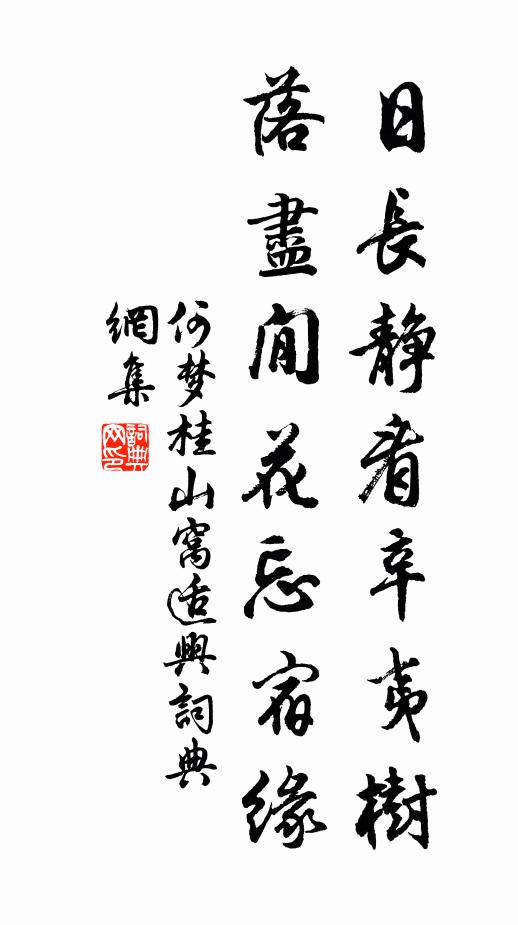 日長靜看辛夷樹
落盡閒花忘宿緣
何梦桂山窩适興詞典
網集
詞典